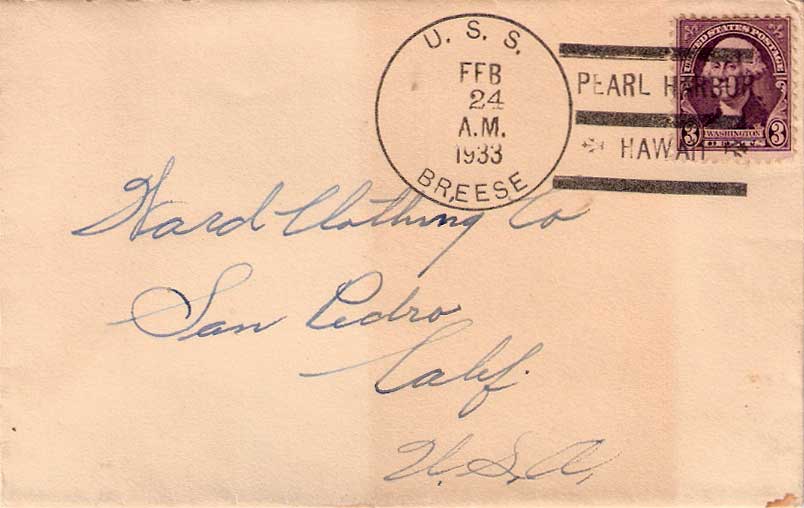 U. S. S.
FEB
24
A.M.
1933
BREESE
PEARL HARBOR
HAWAII
UNITED STATES POSTAGE
WASHINGTON
3 CENTS 3
Ward Clothing Co
San Pedro
Calif.
U.S.A.